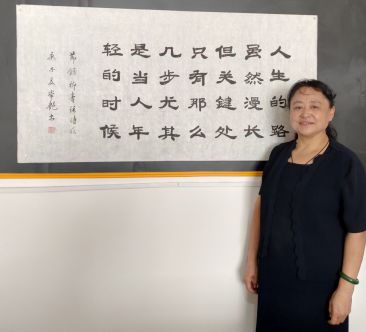 人生的路
虽然漫长
但关鍵处
只有那么
几步尤其
是当人年
轻的时候